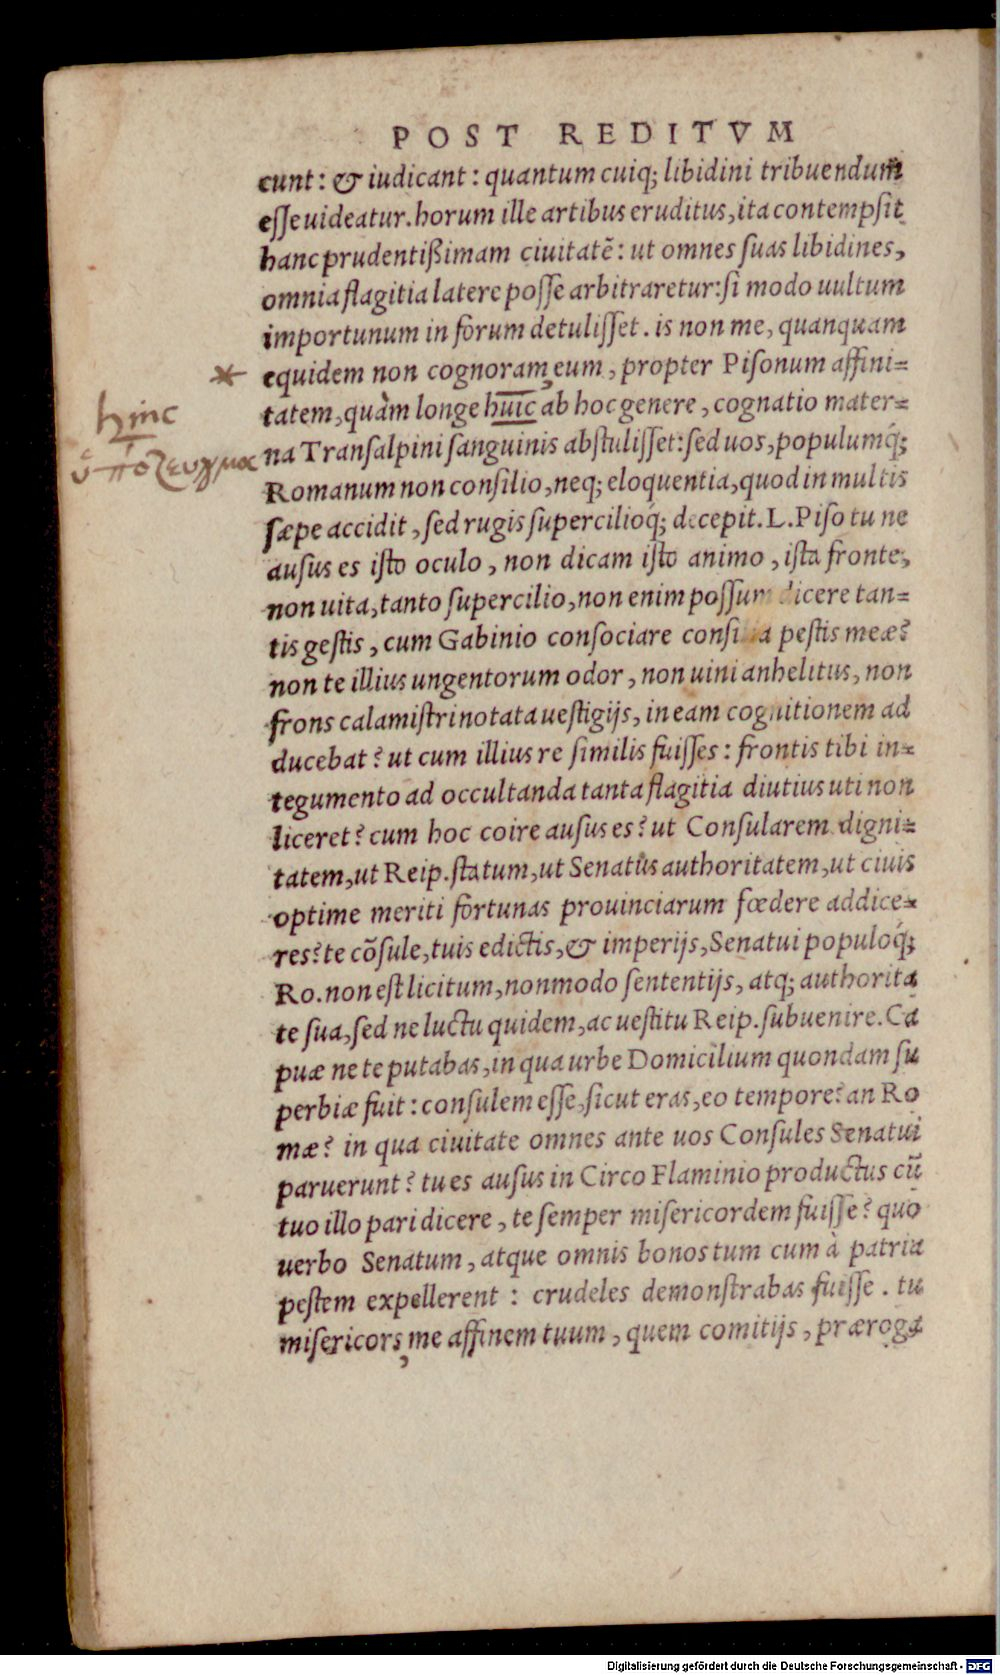 POST REDITVM
cunt: & iudicant: quantum cuiq; libidini tribuendum
esse uideatur. horum ille artibus eruditus, ita contempsit
hanc prudentißimam ciuitatē: ut omnes suas libidines,
omnia flagitia latere posse arbitraretur: si modo uultum
importunum in forum detulisset. is non me, quanquam
* equidem non cognoram, eum, propter Pisonum affini=
tatem, quàm longe huic ab hoc genere, cognatio mater=
hinc
na Transalpini sanguinis abstulisset: sed uos, populumq́;
ὑποζευγμα
Romanum non consilio, neq; eloquentia, quod in multis
sæpe accidit, sed rugis supercilioq́; decepit. L. Piso tu ne
ausus es isto oculo, non dicam isto animo, ista fronte,
non uita, tanto supercilio, non enim possum dicere tan=
tis gestis, cum Gabinio consociare consilia pestis meæ?
non te illius ungentorum odor, non uini anhelitus, non
frons calamistri notata uestigijs, in eam cognitionem ad
ducebat? ut cum illius re similis fuisses: frontis tibi in=
tegumento ad occultanda tanta flagitia diutius uti non
liceret? cum hoc coire ausus es? ut Consularem digni=
tatem, ut Reip. statum, ut Senatus authoritatem, ut ciuis
optime meriti fortunas prouinciarum fœdere addice=
res? te cōsule, tuis edictis, & imperijs, Senatui populoq́;
Ro. non est licitum, nonmodo sententijs, atq; authorita
te sua, sed ne luctu quidem, ac uestitu Reip. subuenire. Ca
puæ ne te putabas, in qua urbe Domicilium quondam su
perbiæ fuit: consulem esse, sicut eras, eo tempore? an Ro
mæ? in qua ciuitate omnes ante uos Consules Senatui
paruerunt? tu es ausus in Circo Flaminio productus cū
tuo illo pari dicere, te semper misericordem fuisse? quo
uerbo Senatum, atque omnis bonos tum cum à patria
pestem expellerent: crudeles demonstrabas fuisse. tu
misericors, me affinem tuum, quem comitijs, præroga
Digitalisierung gefördert durch die Deutsche Forschungsgemeinschaft - DFG